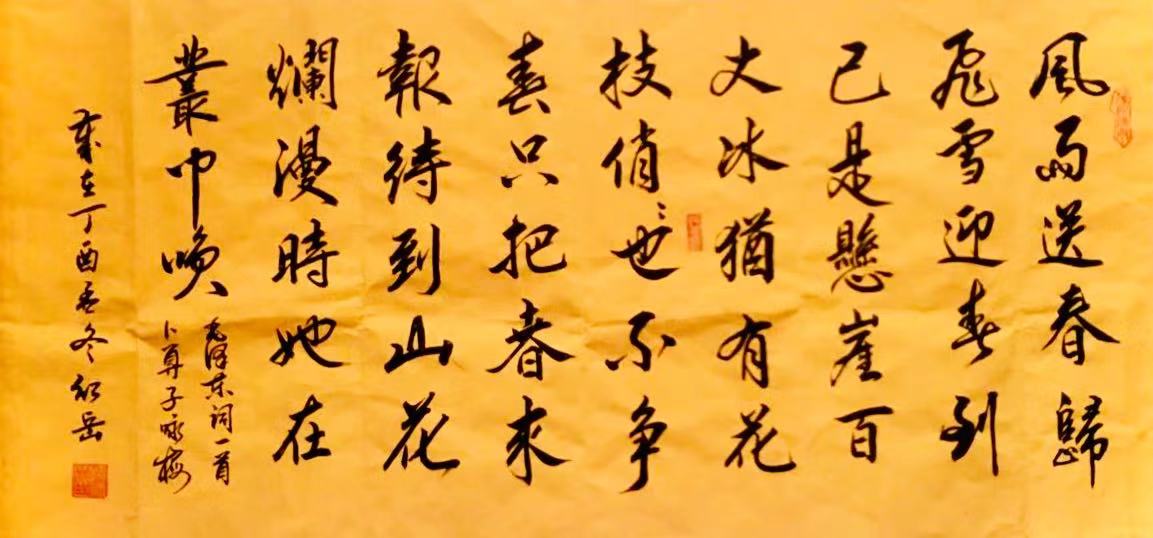 風雨送春歸
飛雪迎春到
已是懸崖百
丈冰猶有花
枝俏〻也不争
春只把春來
報待到山花
爛漫時她在
叢中咲
毛泽东词一首
卜算子咏梅
歲在丁酉孟冬岳